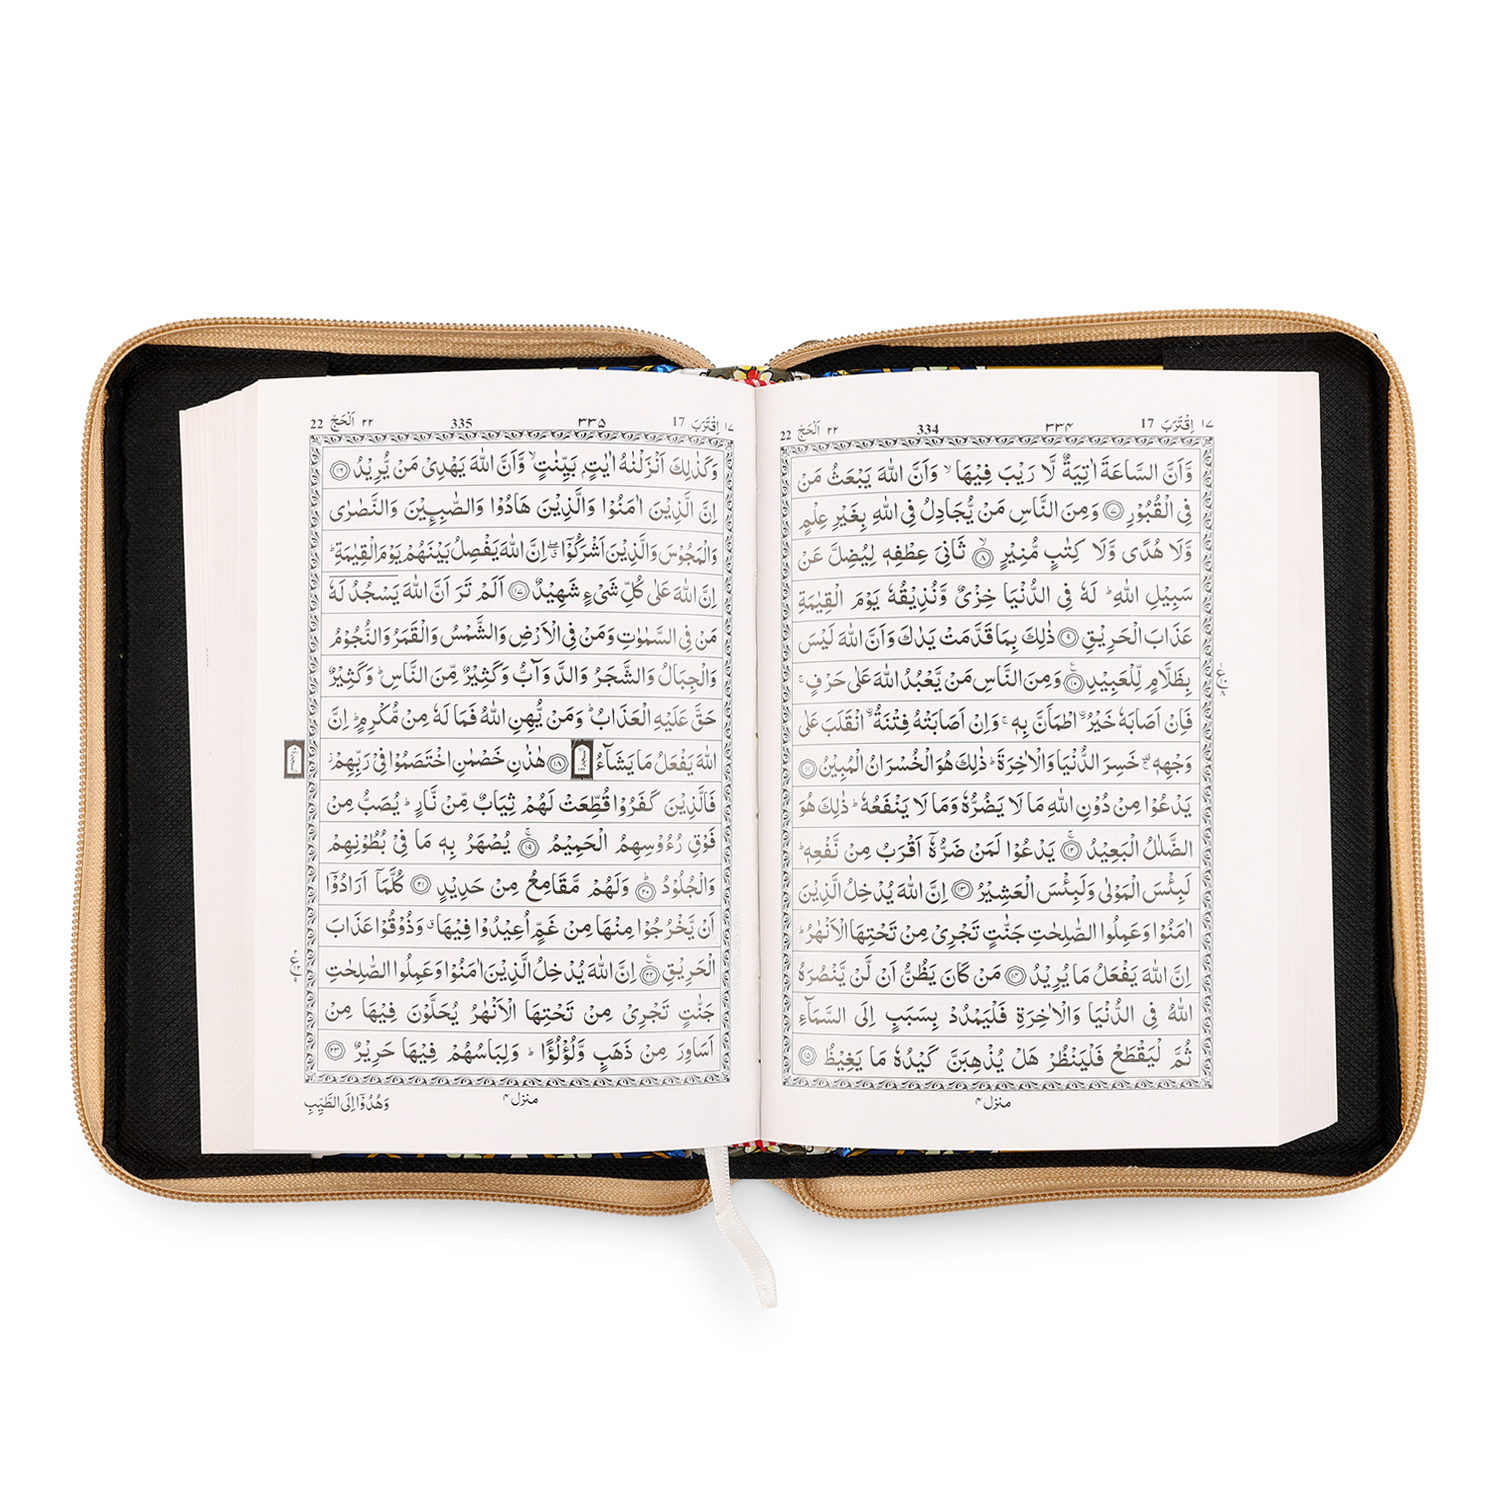 ١٧ اِقْتَرَبَ 17 ٣٣۴ 334 ٢٢ اَلْحَجّ 22
وَّاَنَّ السَّاعَةَ اٰتِيَةٌ لَّا رَيْبَ فِيْهَا ۙ وَاَنَّ اللّٰهَ يَبْعَثُ مَنْ
فِي الْقُبُوْرِ ۝٧ وَمِنَ النَّاسِ مَنْ يُّجَادِلُ فِي اللّٰهِ بِغَيْرِ عِلْمٍ
وَّلَا هُدًى وَّلَا كِتٰبٍ مُّنِيْرٍ ۝٨ۙ ثَانِيَ عِطْفِهٖ لِيُضِلَّ عَنْ
سَبِيْلِ اللّٰهِ ؕ لَهٗ فِي الدُّنْيَا خِزْيٌ وَّنُذِيْقُهٗ يَوْمَ الْقِيٰمَةِ
عَذَابَ الْحَرِيْقِ ۝٩ ذٰلِكَ بِمَا قَدَّمَتْ يَدٰكَ وَاَنَّ اللّٰهَ لَيْسَ
بِظَلَّامٍ لِّلْعَبِيْدِ ۝١٠ۧ وَمِنَ النَّاسِ مَنْ يَّعْبُدُ اللّٰهَ عَلٰى حَرْفٍ ۚ
فَاِنْ اَصَابَهٗ خَيْرُ ۨ اطْمَاَنَّ بِهٖ ۚ وَاِنْ اَصَابَتْهُ فِتْنَةُ ۨ انْقَلَبَ عَلٰى
وَجْهِهٖ ۚ خَسِرَ الدُّنْيَا وَالْاٰخِرَةَ ؕ ذٰلِكَ هُوَ الْخُسْرَانُ الْمُبِيْنُ ۝١١
يَدْعُوْا مِنْ دُوْنِ اللّٰهِ مَا لَا يَضُرُّهٗ وَمَا لَا يَنْفَعُهٗ ؕ ذٰلِكَ هُوَ
الضَّلٰلُ الْبَعِيْدُ ۝١٢ۚ يَدْعُوْا لَمَنْ ضَرُّهٗۤ اَقْرَبُ مِنْ نَّفْعِهٖ ؕ
لَبِئْسَ الْمَوْلٰى وَلَبِئْسَ الْعَشِيْرُ ۝١٣ اِنَّ اللّٰهَ يُدْخِلُ الَّذِيْنَ
اٰمَنُوْا وَعَمِلُوا الصّٰلِحٰتِ جَنّٰتٍ تَجْرِيْ مِنْ تَحْتِهَا الْاَنْهٰرُ ؕ
اِنَّ اللّٰهَ يَفْعَلُ مَا يُرِيْدُ ۝١٤ مَنْ كَانَ يَظُنُّ اَنْ لَّنْ يَّنْصُرَهُ
اللّٰهُ فِي الدُّنْيَا وَالْاٰخِرَةِ فَلْيَمْدُدْ بِسَبَبٍ اِلَى السَّمَآءِ
ثُمَّ لْيَقْطَعْ فَلْيَنْظُرْ هَلْ يُذْهِبَنَّ كَيْدُهٗ مَا يَغِيْظُ ۝١٥
منزل ۴
١٧ اِقْتَرَبَ 17 ٣٣۵ 335 ٢٢ اَلْحَجّ 22
وَكَذٰلِكَ اَنْزَلْنٰهُ اٰيٰتٍۭ بَيِّنٰتٍ ۙ وَّاَنَّ اللّٰهَ يَهْدِيْ مَنْ يُّرِيْدُ ۝١٦
اِنَّ الَّذِيْنَ اٰمَنُوْا وَالَّذِيْنَ هَادُوْا وَالصّٰبِـِٕيْنَ وَالنَّصٰرٰى
وَالْمَجُوْسَ وَالَّذِيْنَ اَشْرَكُوْۤا ۖ اِنَّ اللّٰهَ يَفْصِلُ بَيْنَهُمْ يَوْمَ الْقِيٰمَةِ ؕ
اِنَّ اللّٰهَ عَلٰى كُلِّ شَيْءٍ شَهِيْدٌ ۝١٧ اَلَمْ تَرَ اَنَّ اللّٰهَ يَسْجُدُ لَهٗ
مَنْ فِي السَّمٰوٰتِ وَمَنْ فِي الْاَرْضِ وَالشَّمْسُ وَالْقَمَرُ وَالنُّجُوْمُ
وَالْجِبَالُ وَالشَّجَرُ وَالدَّوَآبُّ وَكَثِيْرٌ مِّنَ النَّاسِ ؕ وَكَثِيْرٌ
حَقَّ عَلَيْهِ الْعَذَابُ ؕ وَمَنْ يُّهِنِ اللّٰهُ فَمَا لَهٗ مِنْ مُّكْرِمٍ ؕ اِنَّ
اللّٰهَ يَفْعَلُ مَا يَشَآءُ ۝١٨ هٰذٰنِ خَصْمٰنِ اخْتَصَمُوْا فِيْ رَبِّهِمْ ؗ
فَالَّذِيْنَ كَفَرُوْا قُطِّعَتْ لَهُمْ ثِيَابٌ مِّنْ نَّارٍ ؕ يُصَبُّ مِنْ
فَوْقِ رُءُوْسِهِمُ الْحَمِيْمُ ۝١٩ۚ يُصْهَرُ بِهٖ مَا فِيْ بُطُوْنِهِمْ
وَالْجُلُوْدُ ۝٢٠ؕ وَلَهُمْ مَّقَامِعُ مِنْ حَدِيْدٍ ۝٢١ كُلَّمَاۤ اَرَادُوْۤا
اَنْ يَّخْرُجُوْا مِنْهَا مِنْ غَمٍّ اُعِيْدُوْا فِيْهَا ۗ وَذُوْقُوْا عَذَابَ
الْحَرِيْقِ ۝٢٢ۧ اِنَّ اللّٰهَ يُدْخِلُ الَّذِيْنَ اٰمَنُوْا وَعَمِلُوا الصّٰلِحٰتِ
جَنّٰتٍ تَجْرِيْ مِنْ تَحْتِهَا الْاَنْهٰرُ يُحَلَّوْنَ فِيْهَا مِنْ
اَسَاوِرَ مِنْ ذَهَبٍ وَّلُؤْلُؤًا ؕ وَلِبَاسُهُمْ فِيْهَا حَرِيْرٌ ۝٢٣
منزل ۴
وَهُدُوْۤا اِلَى الطَّيِّبِ